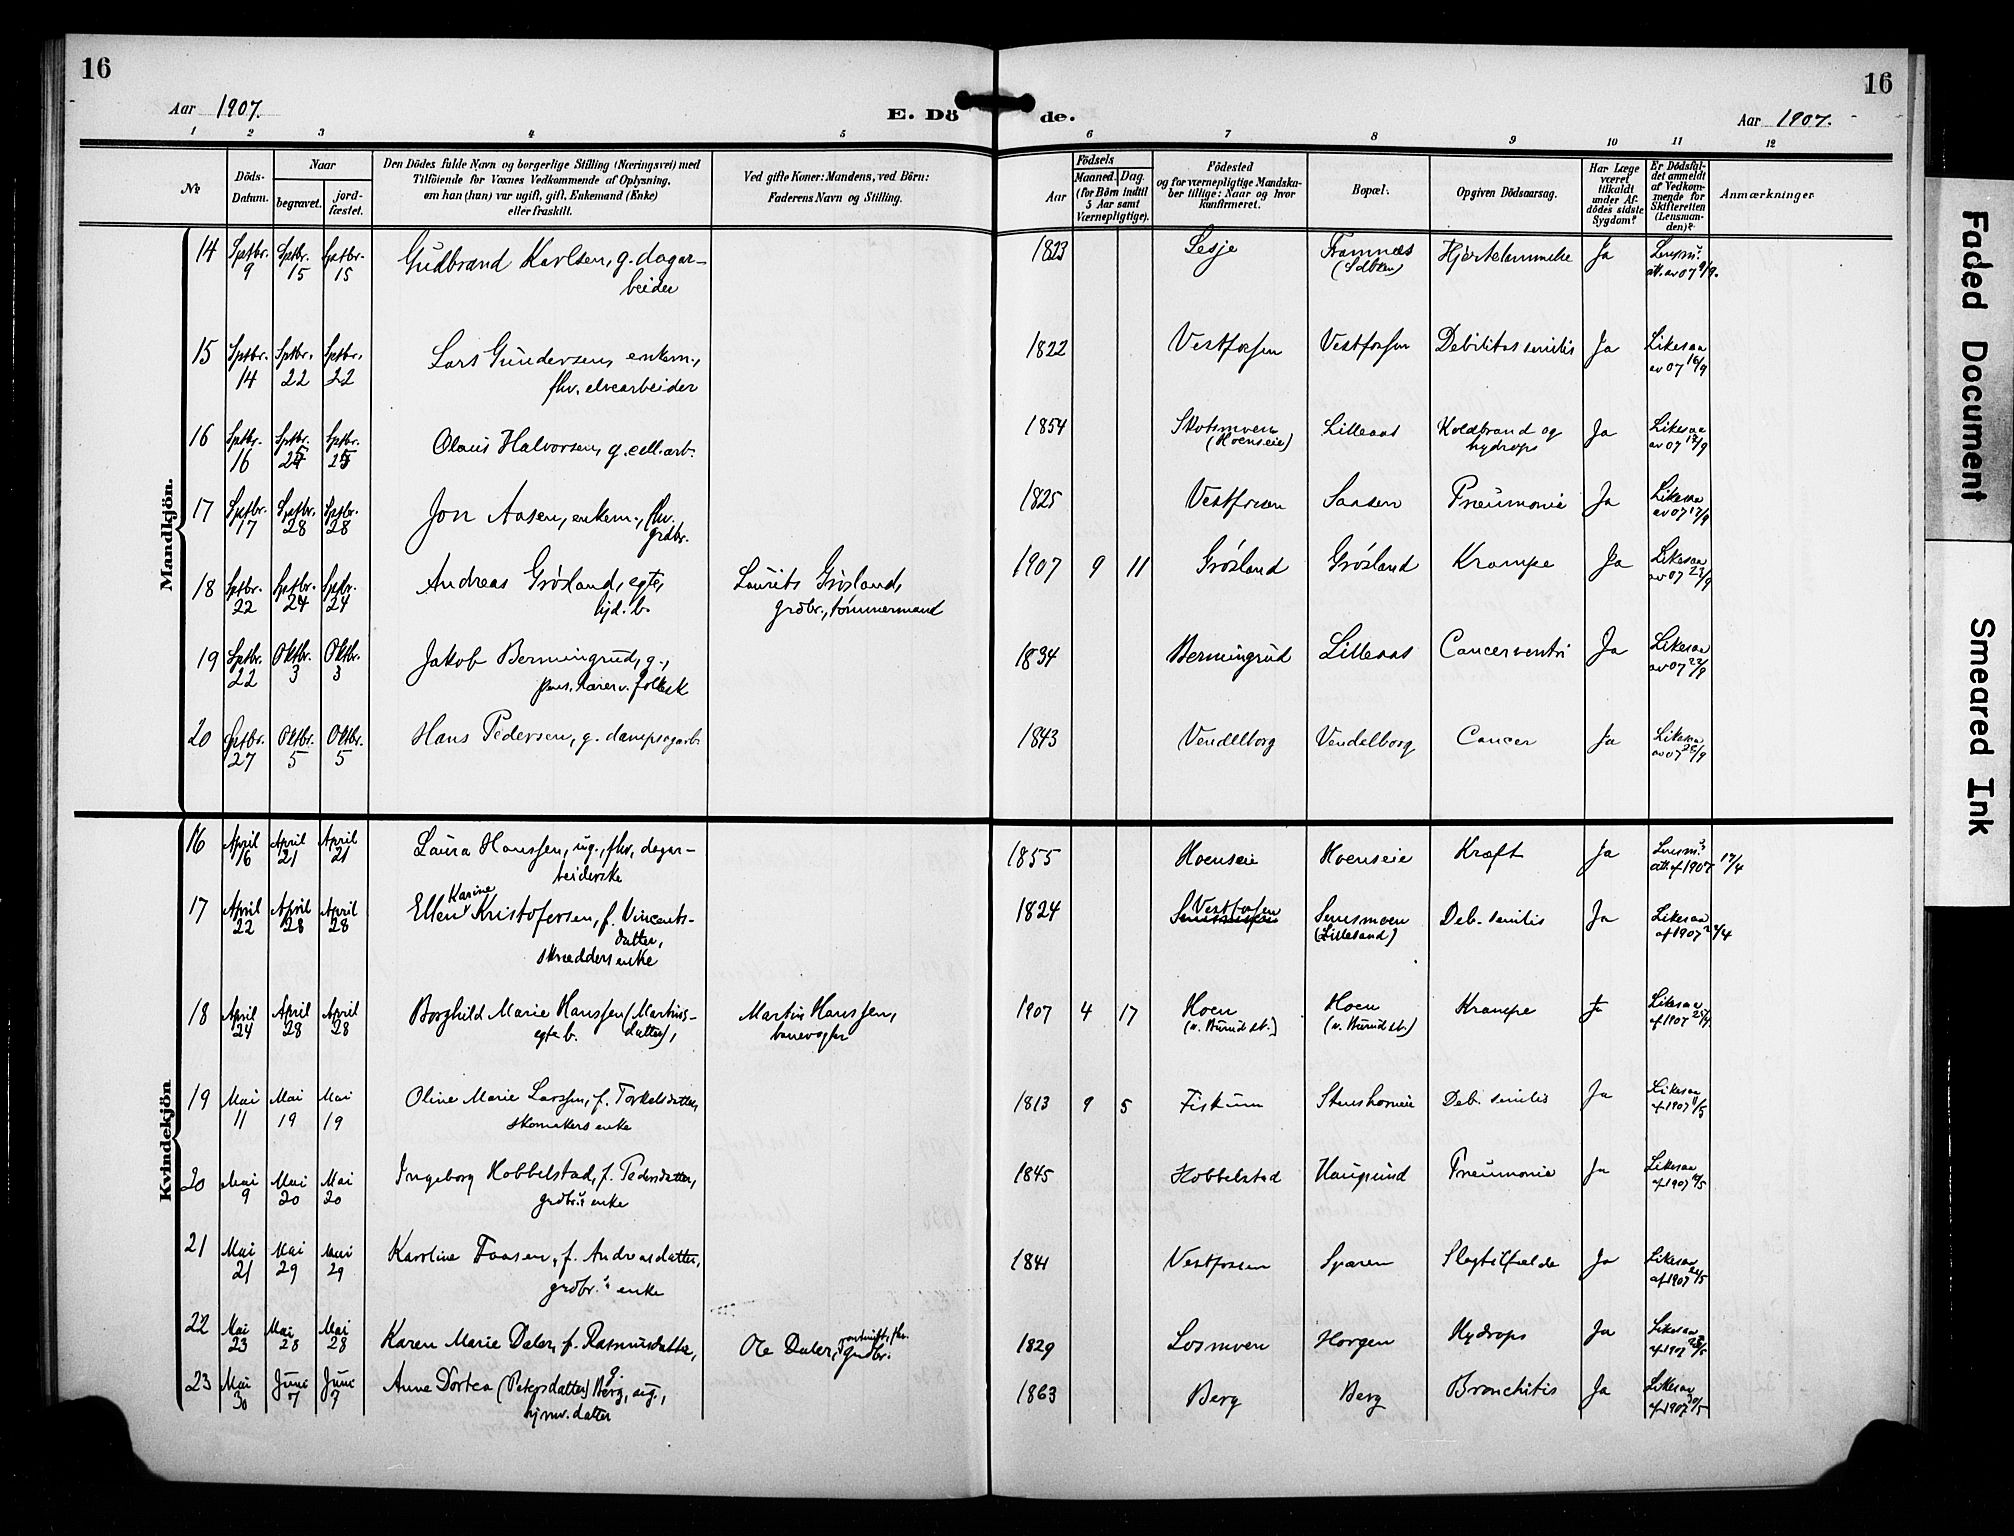 16
16
Aar 1907.
E. Dö de.
Aar 1907.
1 2 3 4 5 6 7 8 9 10 11 12
№
Döds-
Datum.
Naar
begravet.
jord-
fæstet.
Den Dödes fulde Navn og borgerlige Stilling (Næringsvei) med
Tilföiende for Voxnes Vedkommende af Oplysning,
om han (hun) var ugift, gift, Enkemand (Enke)
eller fraskilt.
Ved gifte Koner: Mandens, ved Börn:
Faderens Navn og Stilling.
Födsels
Aar
Maaned.
Dag.
(for Börn indtil
5 Aar samt
Værnepligtige).
Födested
og for værnepligtige Mandska-
ber tillige: Naar og hvor
konfirmeret.
Bopæl.
Opgiven Dödsaarsag.
Har Læge
været
tilkaldt
under Af-
dödes sidste
Sygdom?
Er Dödsfal-
det anmeldt
af Vedkom-
mende for
Skifteretten
(Lensman-
den)?
Anmærkninger
Mandkjön.
14 Sptbr. 9 Sptbr. 15 Sptbr. 15 Gudbrand Karlsen, g. dagar-
beider
1823 Lesje Framnæs Hjertelammelse Ja
15 Sptbr. 14 Sptbr. 22 Sptbr. 22 Lars Gundersen, enkem.,
fhv. elvearbeider
1822 Vestfossen Vestfossen Debilitas senilis Ja Likesaa av 07 16/9
16 Sptbr. 16 Sptbr. Sptbr. Olaus Halvorsen, g. cell.arb.
1854 Skotsmoen (Hoenseie) Lilleaas Koldbrand og hydrops Ja Likesaa av 07
17 Sptbr. 17 Sptbr. 28 Sptbr. 28 Jon Aasen, enkem., fhv.
grdbr.
1825 Vestfossen Saasen Pneumonie Ja Likesaa av 07 17/9
18 Sptbr. 22 Sptbr. 24 Sptbr. 24 Andreas Grøsland, egte,
hjd. b.
Laurits Grøsland,
grdbr., tømmermand
1907 9 11 Grøsland Grøsland Krampe Ja Likesaa av 07 22/9
19 Sptbr. 22 Oktbr. 3 Oktbr. 3 Jakob Bermingrud, g.,
pens. lærer v. folkesk
1834 Bermingrud Lilleaas Cancer ventri Ja Likesaa av 07
20 Sptbr. 27 Oktbr. 5 Oktbr. 5 Hans Pedersen, g. dampsagarb.
1843 Vendelborg Vendelborg Cancer Ja Likesaa av 07 28/9
Kvindekjön
16 April 16 April 21 April 21 Laura Hanssen, ug., fhv. dagar-
beiderske
1855 Hoenseie Hoenseie Kræft Ja 17/4
17 April 22 April 28 April 28 Ellen Karine Kristofersen, f. Vincents-
datter,
skrædders enke
1824 Vestfossen Semsmoen (Lillesand) Deb. senilis Ja Likesaa af 1907
18 April 24 April 28 April 28 Borghild Marie Hanssen (Martins-
datter),
egte b.
Martin Hanssen,
banevogter
1907 4 17 Hoen (v. Burud st.) Hoen (v. Burud st.) Krampe Ja Likesaa af 1907 25/4
19 Mai 11 Mai 19 Mai 19 Oline Marie Larssen, f. Torkelsdatter,
skomakers enke
1813 9 5 Fiskum Stenshorneie Deb. senilis Ja Likesaa af 1907 11/5
20 Mai 9 Mai 20 Mai 20 Ingeborg Hobbelstad, f. Pedersdatter,
grdbr.s enke
1845 Hobbelstad Haugsund Pneumonie Ja Likesaa af 1907
21 Mai 21 Mai 29 Mai 29 Karoline Faasen, f. Andreasdatter,
grdbr.s enke
1841 Vestfossen Sparen Slagtilfælde Ja Likesaa af 1907
22 Mai 23 Mai 28 Mai 28 Karen Marie Daler, f. Rasmusdatter,
Ole Daler, fhv. grdbr.
1829 Losmoen Horgen Hydrops Ja Likesaa af 1907
23 Mai 30 Juni 7 Juni 7 Anne Dortea (Petersdatter) Berg, ug.,
datter
1863 Berg Berg Bronchitis Ja Likesaa af 1907 30/5
Faded Document
Smeared Ink